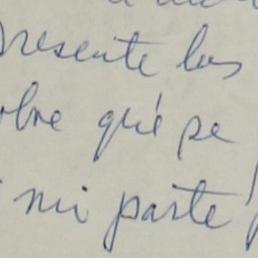 presente las
obre qué se
mi parte